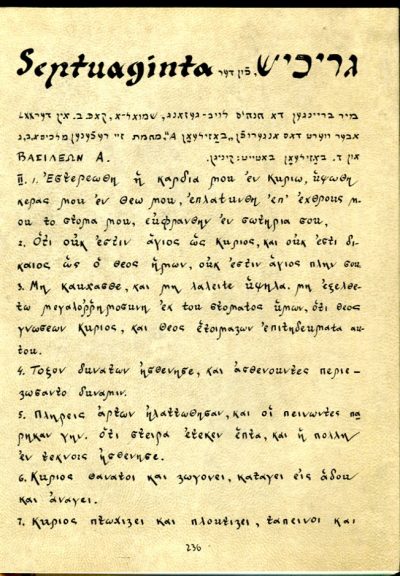 Septuaginta פֿון דער גריכיש,
מיר ברייננען דא חנה׳ס לויב-געזאנג, שמואל-א, קאפ. ב. אין דער
אבער ווערט דאס אנגערופן „באזילעאן A“. מחמת זיי רעכענען מלכים א, ב, ג
ΒΑΣΙΛΕΩΝ Α. אין ד. באזילעאן באטייט: קיניגן.
II. 1. Ἐστερεωθη ἡ καρδια μου ἐν Κυριω, ὑψωθη
κερας μου ἐν Θεω μου, ἐπλατυνθη ἐπ' ἐχθρους μ-
ου το στομα μου, εὐφρανθην ἐν σωτηρια σου,
2. Ὁτι οὐκ ἐστιν ἁγιος ὡς Κυριος, και οὐκ ἐστι δι-
καιος ὡς ὁ θεος ἡμων, οὐκ ἐστιν ἁγιος πλην σου
3. Μη καυχασθε, και μη λαλειτε ὑψηλα. μη ἐξελθε-
τω μεγαλορῥημοσυνη ἐκ του στοματος ὑμων, ὁτι θεος
γνωσεων Κυριος, και θεος ἑτοιμαζων ἐπιτηδευματα αυ-
του.
4. Τοξον δυνατων ἠσθενησε, και ἀσθενουντες περιε-
ζωσαντο δυναμιν.
5. Πληρεις ἀρτων ἠλαττωθησαν, και οἱ πεινωντες πα
ρηκαν γην. ὁτι στειρα ἐτεκεν ἑπτα, και ἡ πολλη
ἐν τεκνοις ἠσθενησε.
6. Κυριος θανατοι και ζωγονει, καταγει εἰς ἁδου
και ἀναγει.
7. Κυριος πτωχιζει και πλουτιζει, ταπεινοι και
236